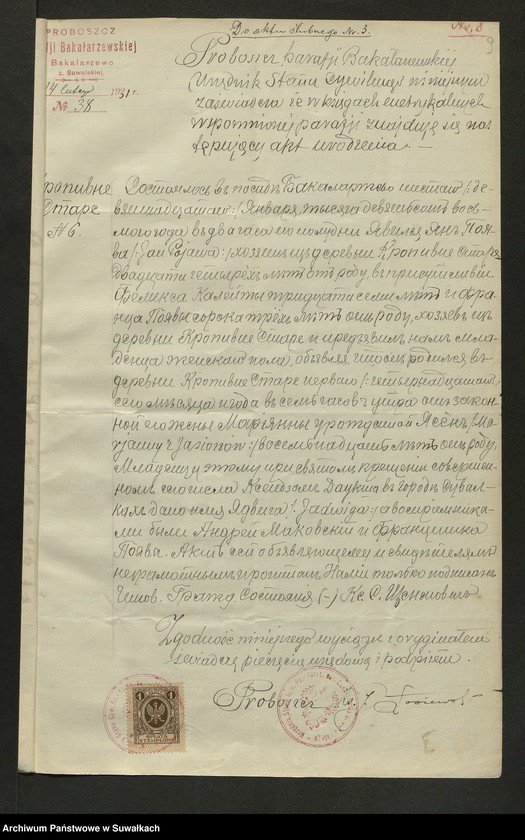 Do aktu ślubnego Nr. 3.
Nr. 8
9
PROBOSZCZ
ji Bakałarzewskiej
Bakalarzewo
z. Suwalskiej.
14 lutego 1931 r.
№ 38
Proboszcz parafji Bakałarzewskiej
Urzędnik Stanu Cywilnego niniejszym
zaświadcza że w księgach metrykalnych
wspomnionej parafji znajduje się nas
tępujący akt urodzenia. —
Кропивне
Старе
№ 6.
Состоялось въ посадѣ Бакаларжево шестаго /: де-
вятнадцатаго :/ Января, тысяча девятьсотъ вось-
мого года въ два часа по полудни. Явился Янъ Поя-
ва /: Jan Pojawa :/ хозяинъ изъ деревни Кропивне Старе
двадцати четырёхъ лѣтъ отъ роду, въ присутствіи
Феликса Калейты тридцати семи лѣтъ и Фран-
ца Появы сорока трёхъ лѣтъ отъ роду, хозяевъ изъ
деревни Кропивне Старе и предъявилъ намъ мла-
денца женскаго пола, объявляя, что онъ родился въ
деревни Кропивне Старе перваго /: четырнадцатаго :/
сего мѣсяца и года въ семь часовъ утра отъ закон-
ной его жены Маріянны урожденной
восемнадцати лѣтъ отъ роду.
Младенцу этому при святомъ крещеніи совершен-
номъ сего числа Ксендзомъ
дано имя Ядвига /: Jadwiga :/ а воспріемника-
ми были Андрей Маковскій и Францишка
Поява. Актъ сей объявляющему и свидѣтелямъ
неграмотнымъ прочитанъ Нами только подписанъ.
Состоянія (–) Кс. С.
Zgodność niniejszego wyciągu z oryginałem
świadczę pieczęcią urzędową i podpisem.
Proboszcz ks. J.
1 1
OPŁATA
STEMPLOWA
Archiwum Państwowe w Suwałkach